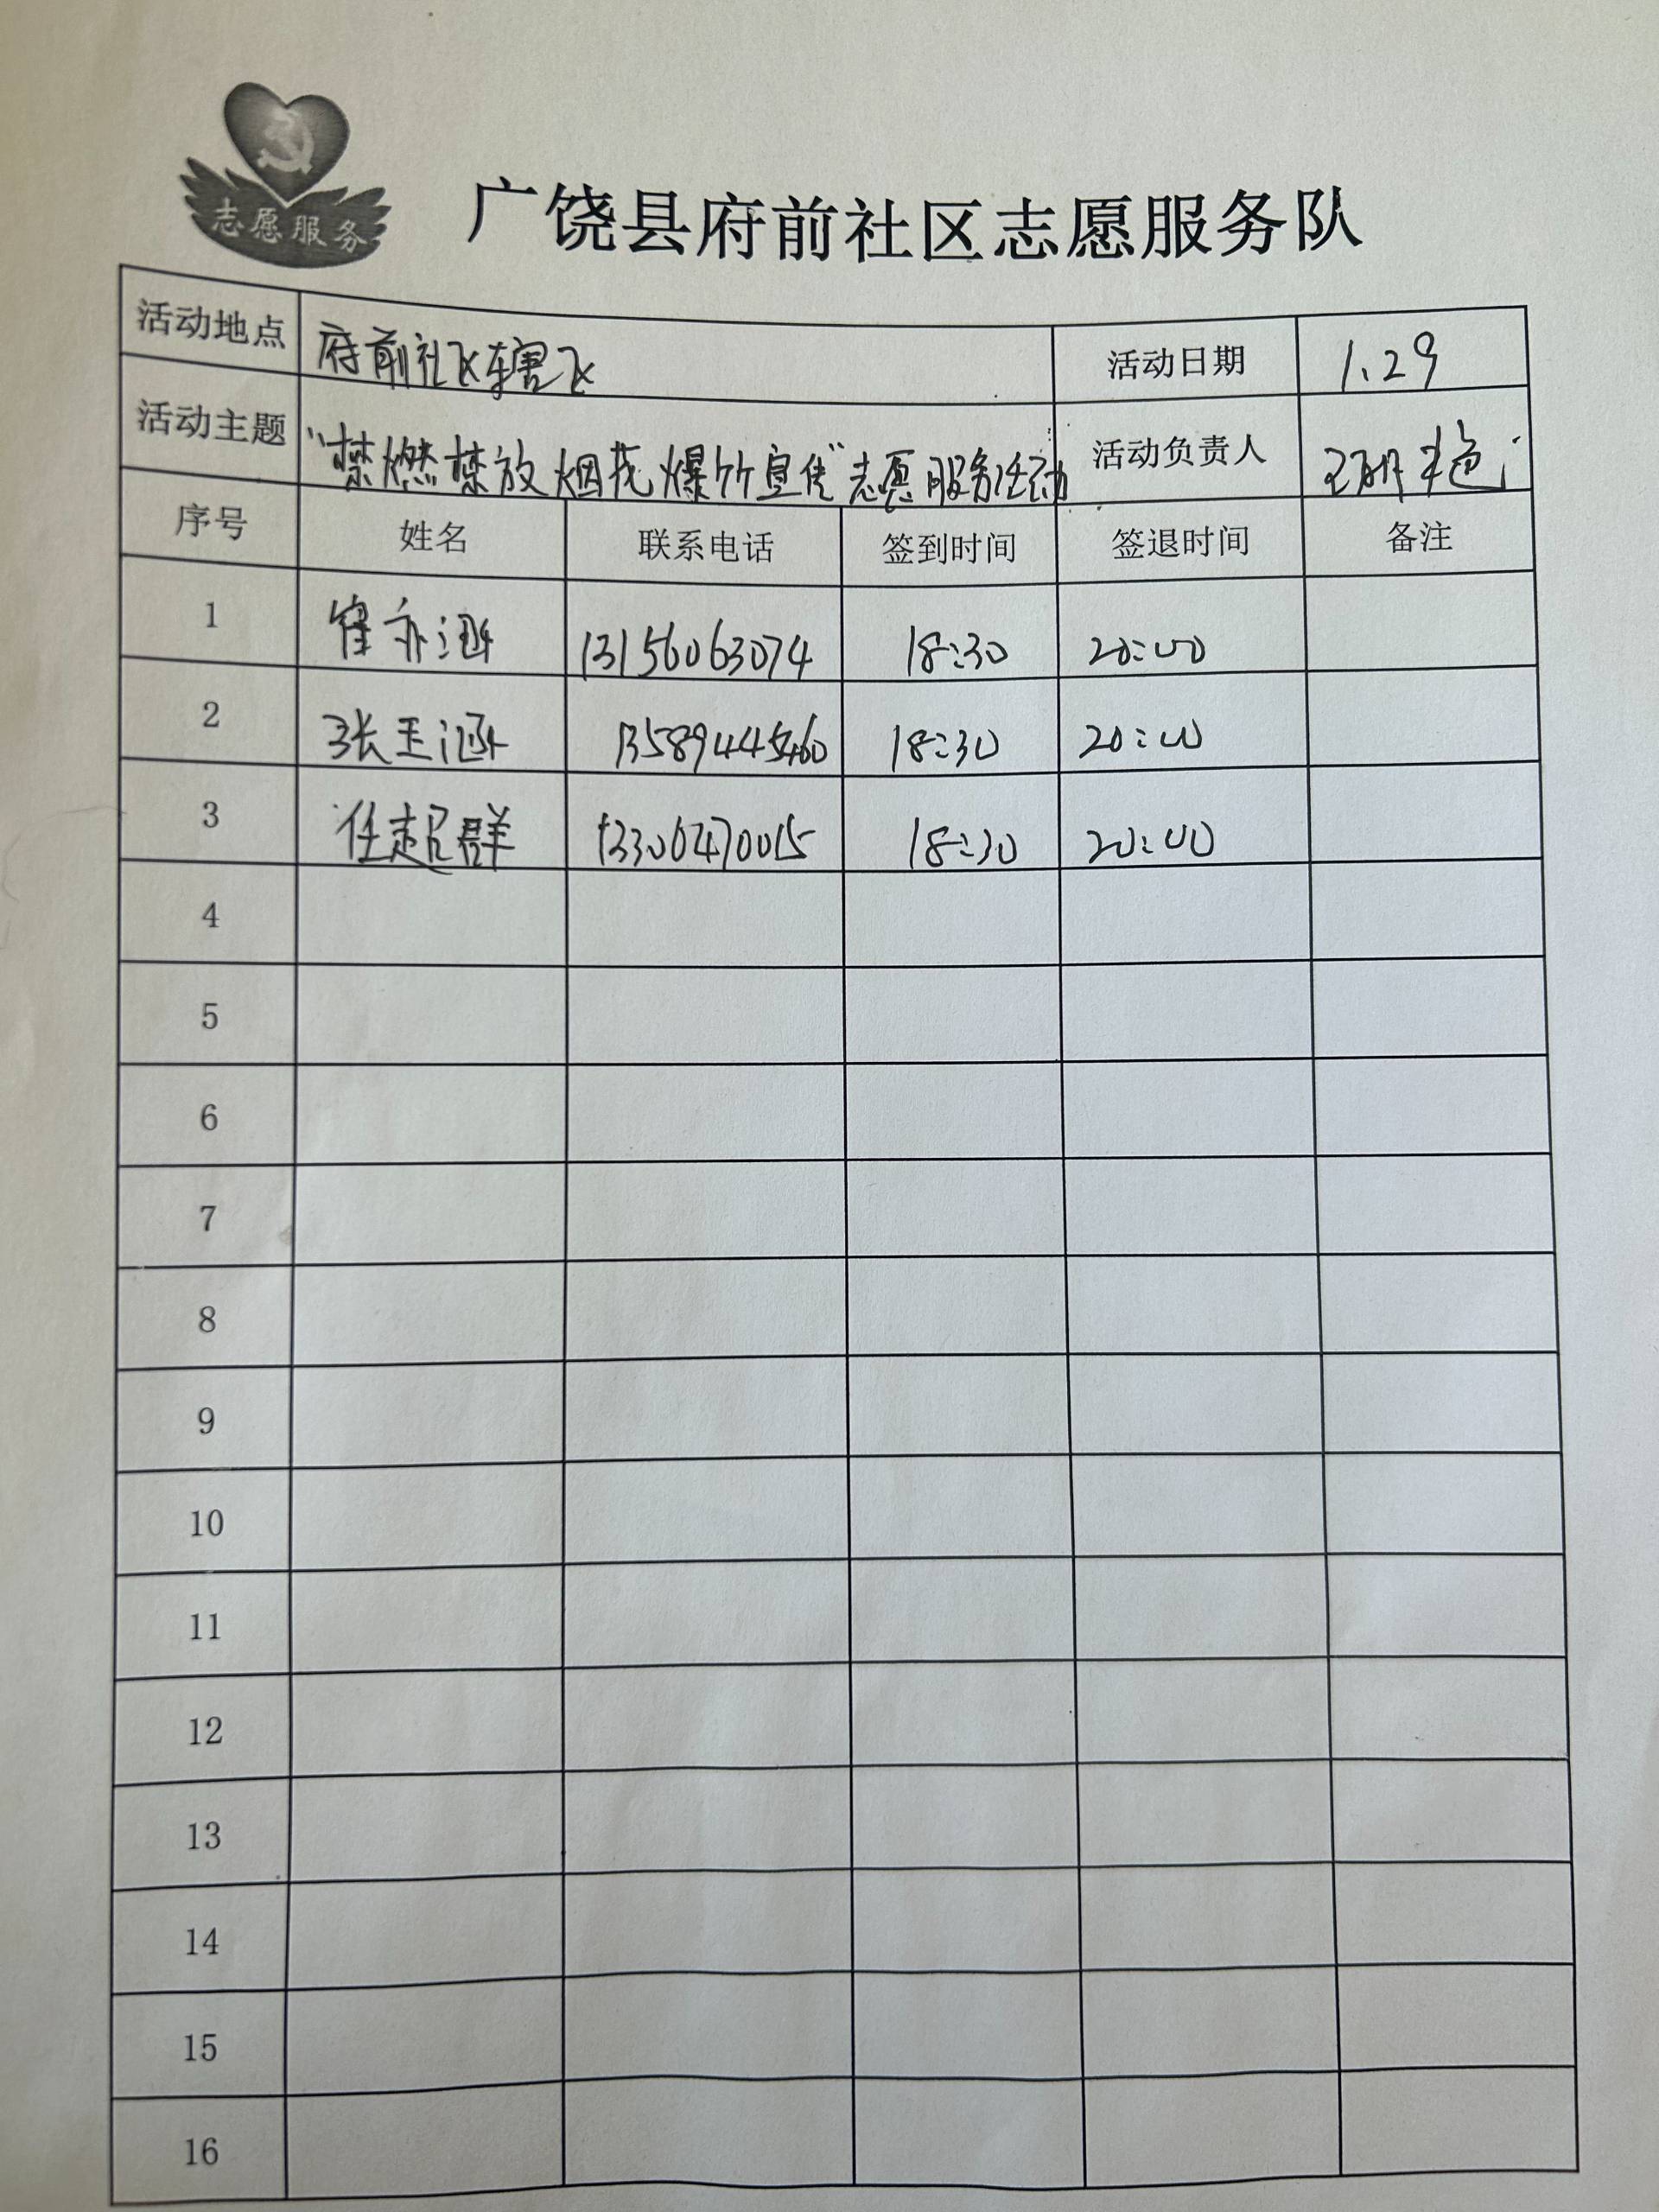 志愿服务
广饶县府前社区志愿服务队
活动地点 府前社区辖区 活动日期 1.29
活动主题 "禁燃禁放烟花爆竹宣传"志愿服务活动 活动负责人
序号 姓名 联系电话 签到时间 签退时间 备注
1 崔亦涵 13156063074 18:30 20:00
2 张玉涵 13589445460 18:30 20:00
3 任超群 13306470015 18:30 20:00
4
5
6
7
8
9
10
11
12
13
14
15
16